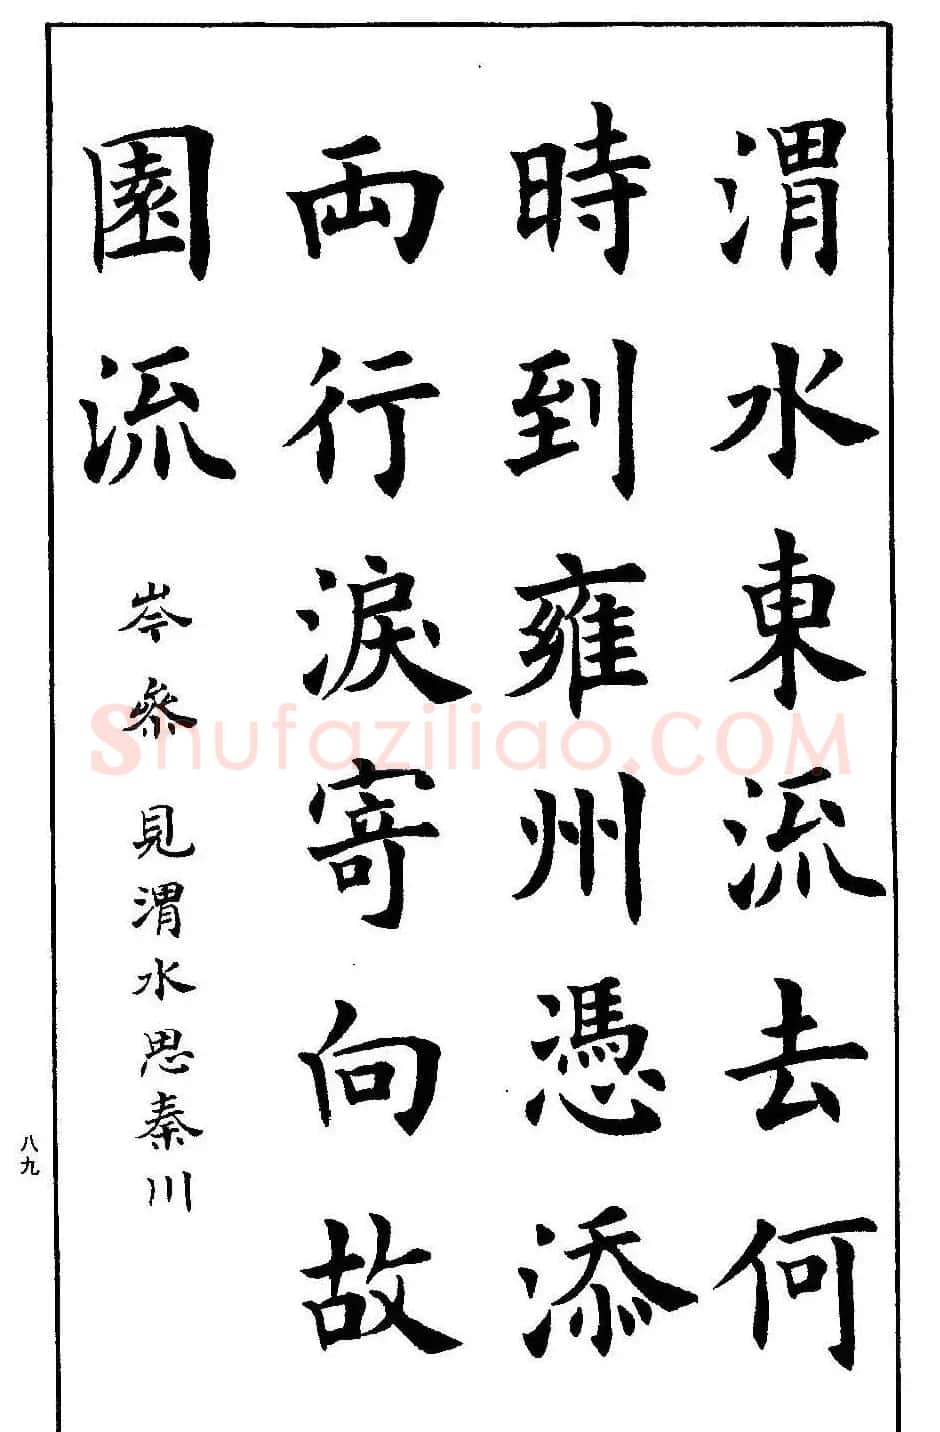 渭水東流去何
時到雍州憑添
両行淚寄向故
園流
岑參 見渭水思秦川
八九
Shufaziliao.COM